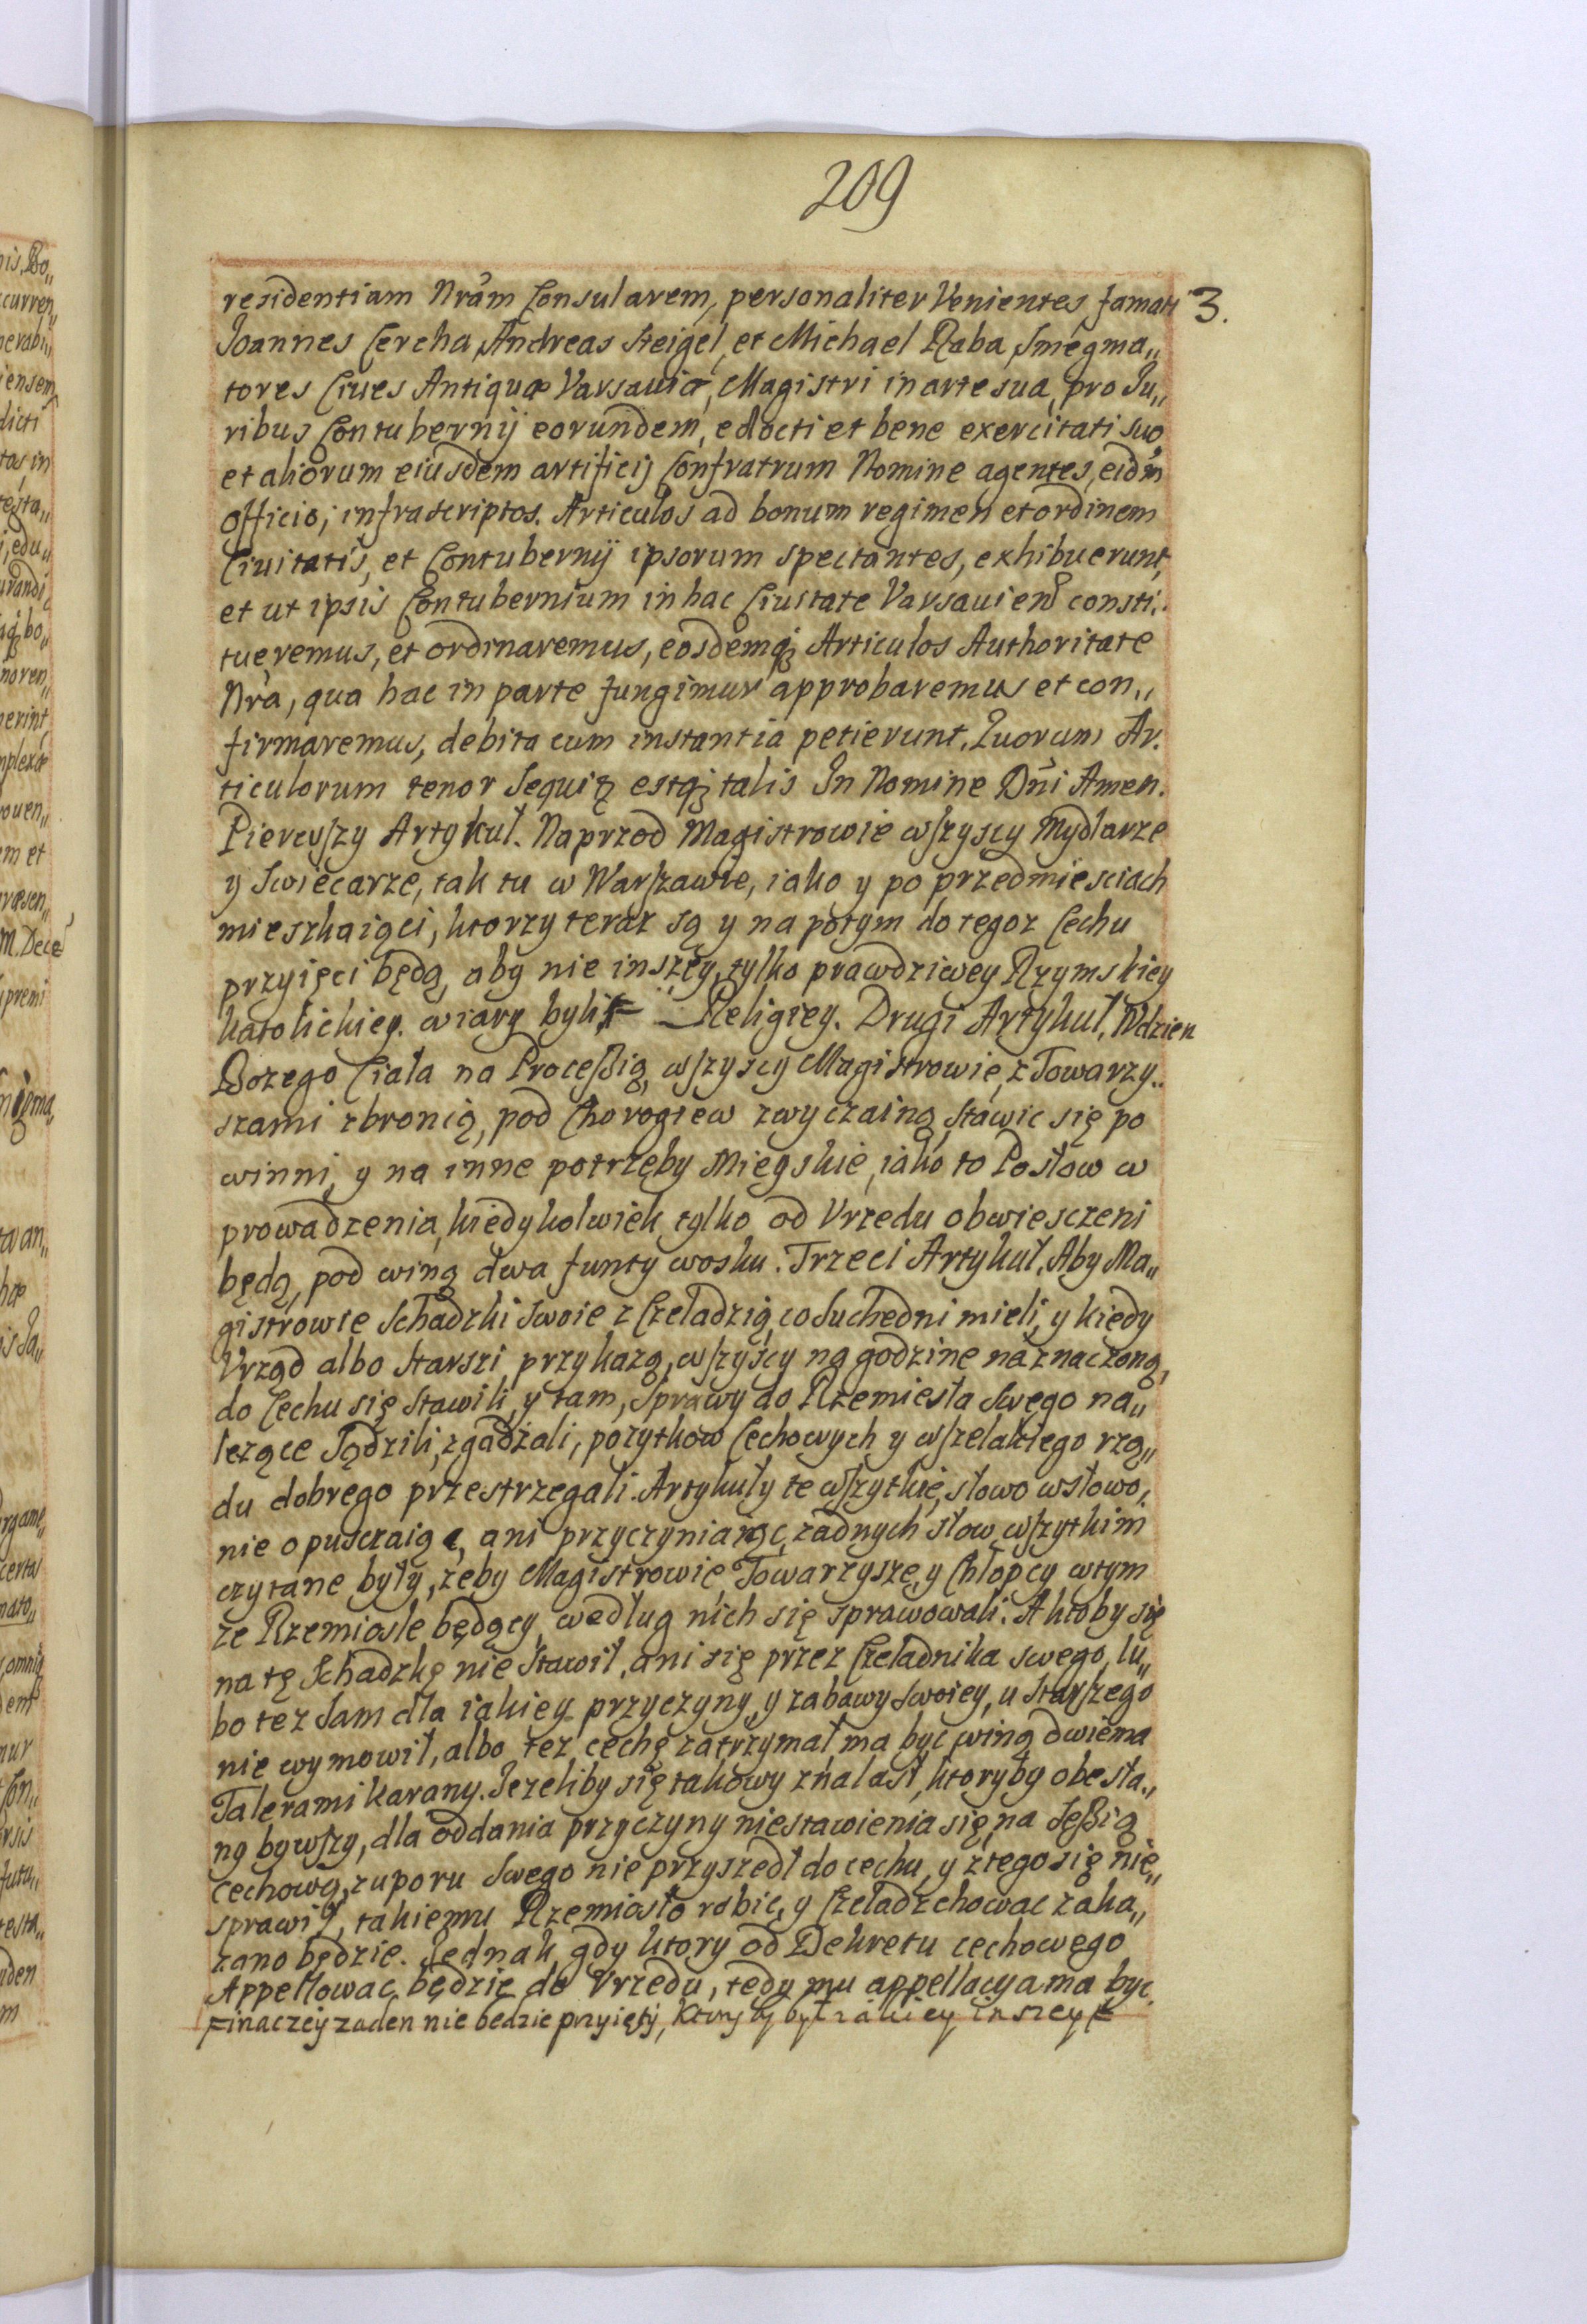 209
residentiam Nrãm Consularem, personaliter Venientes famati 3.
Joannes Cercha, Andreas Steigel, et Michael Raba, Smegma„
tores Ciues Antiquæ Varsauiæ, Magistri in arte sua, pro Ju„
ribus Contubernij eorundem, edocti et bene exercitati suo
et aliorum eiusdem artificij Confratrum Nomine agentes, eidm̃
officio, infrascriptos. Articulos ad bonum regimen et ordinem
Ciuitatis, et Contubernij ipsorum spectantes, exhibuerunt,
et ut ipsis Contubernium in hac Ciuitate Varsauien̄ consti„
tueremus, et ordinaremus, eosdemq; Articulos Authoritate
Nrà, qua hac in parte fungimur approbaremus et con„
firmaremus, debita cum instantia petierunt. Quorum Ar.
ticulorum tenor Sequiꝶ estq; talis In Nomine Dñi Amen.
Pierwszy Artykuł. Naprzod Magistrowie wszyscy Mydlarze
y Swiecarze, tak tu w Warszawie, iako y po przedmiesciach
mieszkaiąci, ktorzy teraz są y na potym do tegoz Cechu
przyięci będą, aby nie inszey, tylko prawdziwey Rzymskiey
katolickiey. wiary byli, Religiey. Drugi Artykuł. Wdzien
Bozego Ciała na Processią, wszyscy Magistrowie, z Towarzy„
szami zbronią, pod Chorogiew zwyczainą, stawic się po
winni, y na inne potrzeby Mieyskie, iako to Posłow w
prowadzenia, kiedykolwiek tylko od Vrzedu obwiesczeni
będą, pod winą dwa funty wosku. Trzeci Artykuł, Aby Ma„
gistrowie Schadzki swoie z Czeladzią, co Suchedni mieli, y kiedy
Vrząd albo Starszi przykazą, wszyscy na godzine naznaczoną,
do Cechu się stawili, y tam, Sprawy do Rzemiesła Swego na„
lezące Sądzili, zgadzali, pozytkow Cechowych y wszelakiego rzą„
du dobrego przestrzegali. Artykuły te wszytkie, słowo wsłowo,
nie opuscraiąc, ani przyczyniaiąc, zadnych słow, wszytkim
czytane były, zeby Magistrowie, Towarzysze, y Chłopcy wtym
ze Rzemiosle będący, według nich się sprawowali. A ktoby się
na tę Schadzkę nie stawił, ani się przez Czeladnika swego, lu„
bo tez Sam dla iakiey przyczyny, y zabawy Swoiey, u Starszego
nie wymowił, albo tez cechę zatrzymał, ma byc winą dwiema
Talerami karany. Jezeliby się takowy znalasł, ktoryby obesła„
ny bywszy, dla oddania przyczyny niestawienia się, na Sessią
cechową, zuporu Swego nie przyszedł do cechu, y ztego się nie„
sprawił, takiemu Rzemiosło robic, y Czeladz chowac zaka„
zano będzie. Jednak gdy ktory od Dekretu cechowego
Appellowac będzie do Vrzędu, tedy mu appellacya ma byc.
inaczey zaden nie bedzie przyięty, ktoryby był iakiey inszey